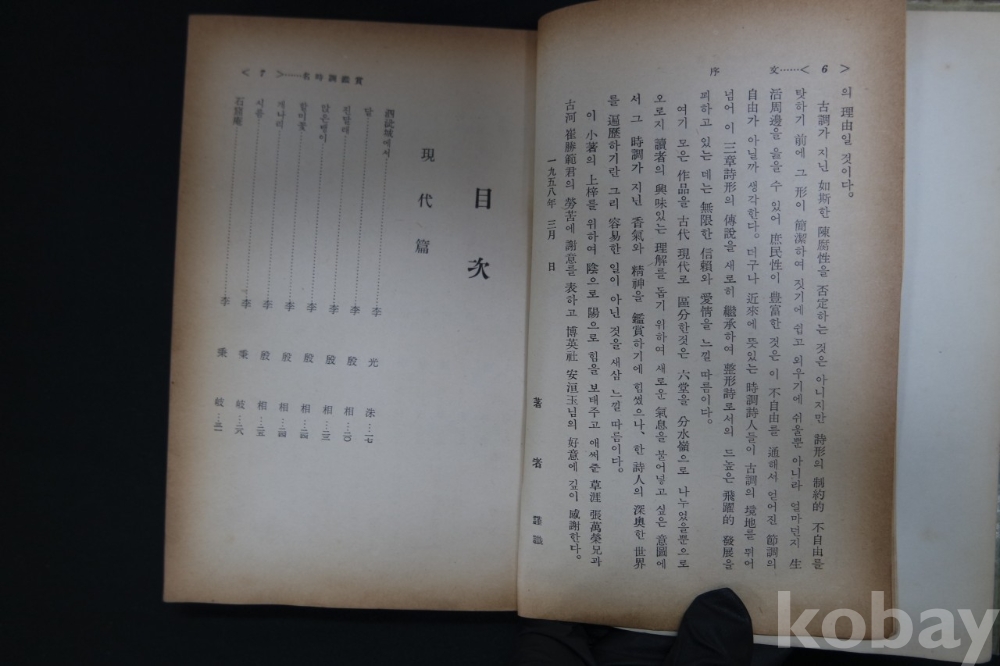 序……文
< 6 >
의 理由일 것이다.
古調가 지닌 如斯한 陳腐性을 否定하는 것은 아니지만 詩形의 制約的 不自由를
탓하기 前에 그 形이 簡潔하여 짓기에 쉽고 외우기에 쉬울뿐 아니라 얼마던지 生
活周邊을 읊을 수 있어 庶民性이 豊富한 것은 이 不自由를 通해서 얻어진 節調의
自由가 아닐까 생각한다. 더구나 近來에 뜻있는 時調詩人들이 古調의 境地를 뛰어
넘어 이 三章詩形의 傳說을 새로히 繼承하여 整形詩로서의 드높은 飛躍的 發展을
꾀하고 있는 데는 無限한 信賴와 愛情을 느낄 따름이다.
여기 모은 作品을 古代 現代로 區分한것은 六堂을 分水嶺으로 나누었을뿐으로
오로지 讀者의 興味있는 理解를 돕기 위하여 새로운 氣息을 불어넣고 싶은 意圖에
서 그 時調가 지닌 香氣와 精神을 鑑賞하기에 힘썼으나, 한 詩人의 深奥한 世界
를 遍歷하기란 그리 容易한 일이 아닌 것을 새삼 느낄 따름이다.
이 小著의 上梓를 위하여 陰으로 陽으로 힘을 보태주고 애써준 草涯 張萬榮兄과
古河 崔勝範君의 勞苦에 謝意를 表하고 博英社 安洹玉님의 好意에 깊이 感謝한다.
一九五八年 三月 日
著者 謹識
< 7 >……名時調鑑賞
目次
現代篇
酒泌城에서……李光洙…一七
달……李殷相…二〇
진달래……李殷相…二三
앉은뱅이……李殷相…二四
할미꽃……李殷相…二四
개나리……李殷相…二五
시름……李秉岐…二八
石窟庵……李秉岐…三一
kobay